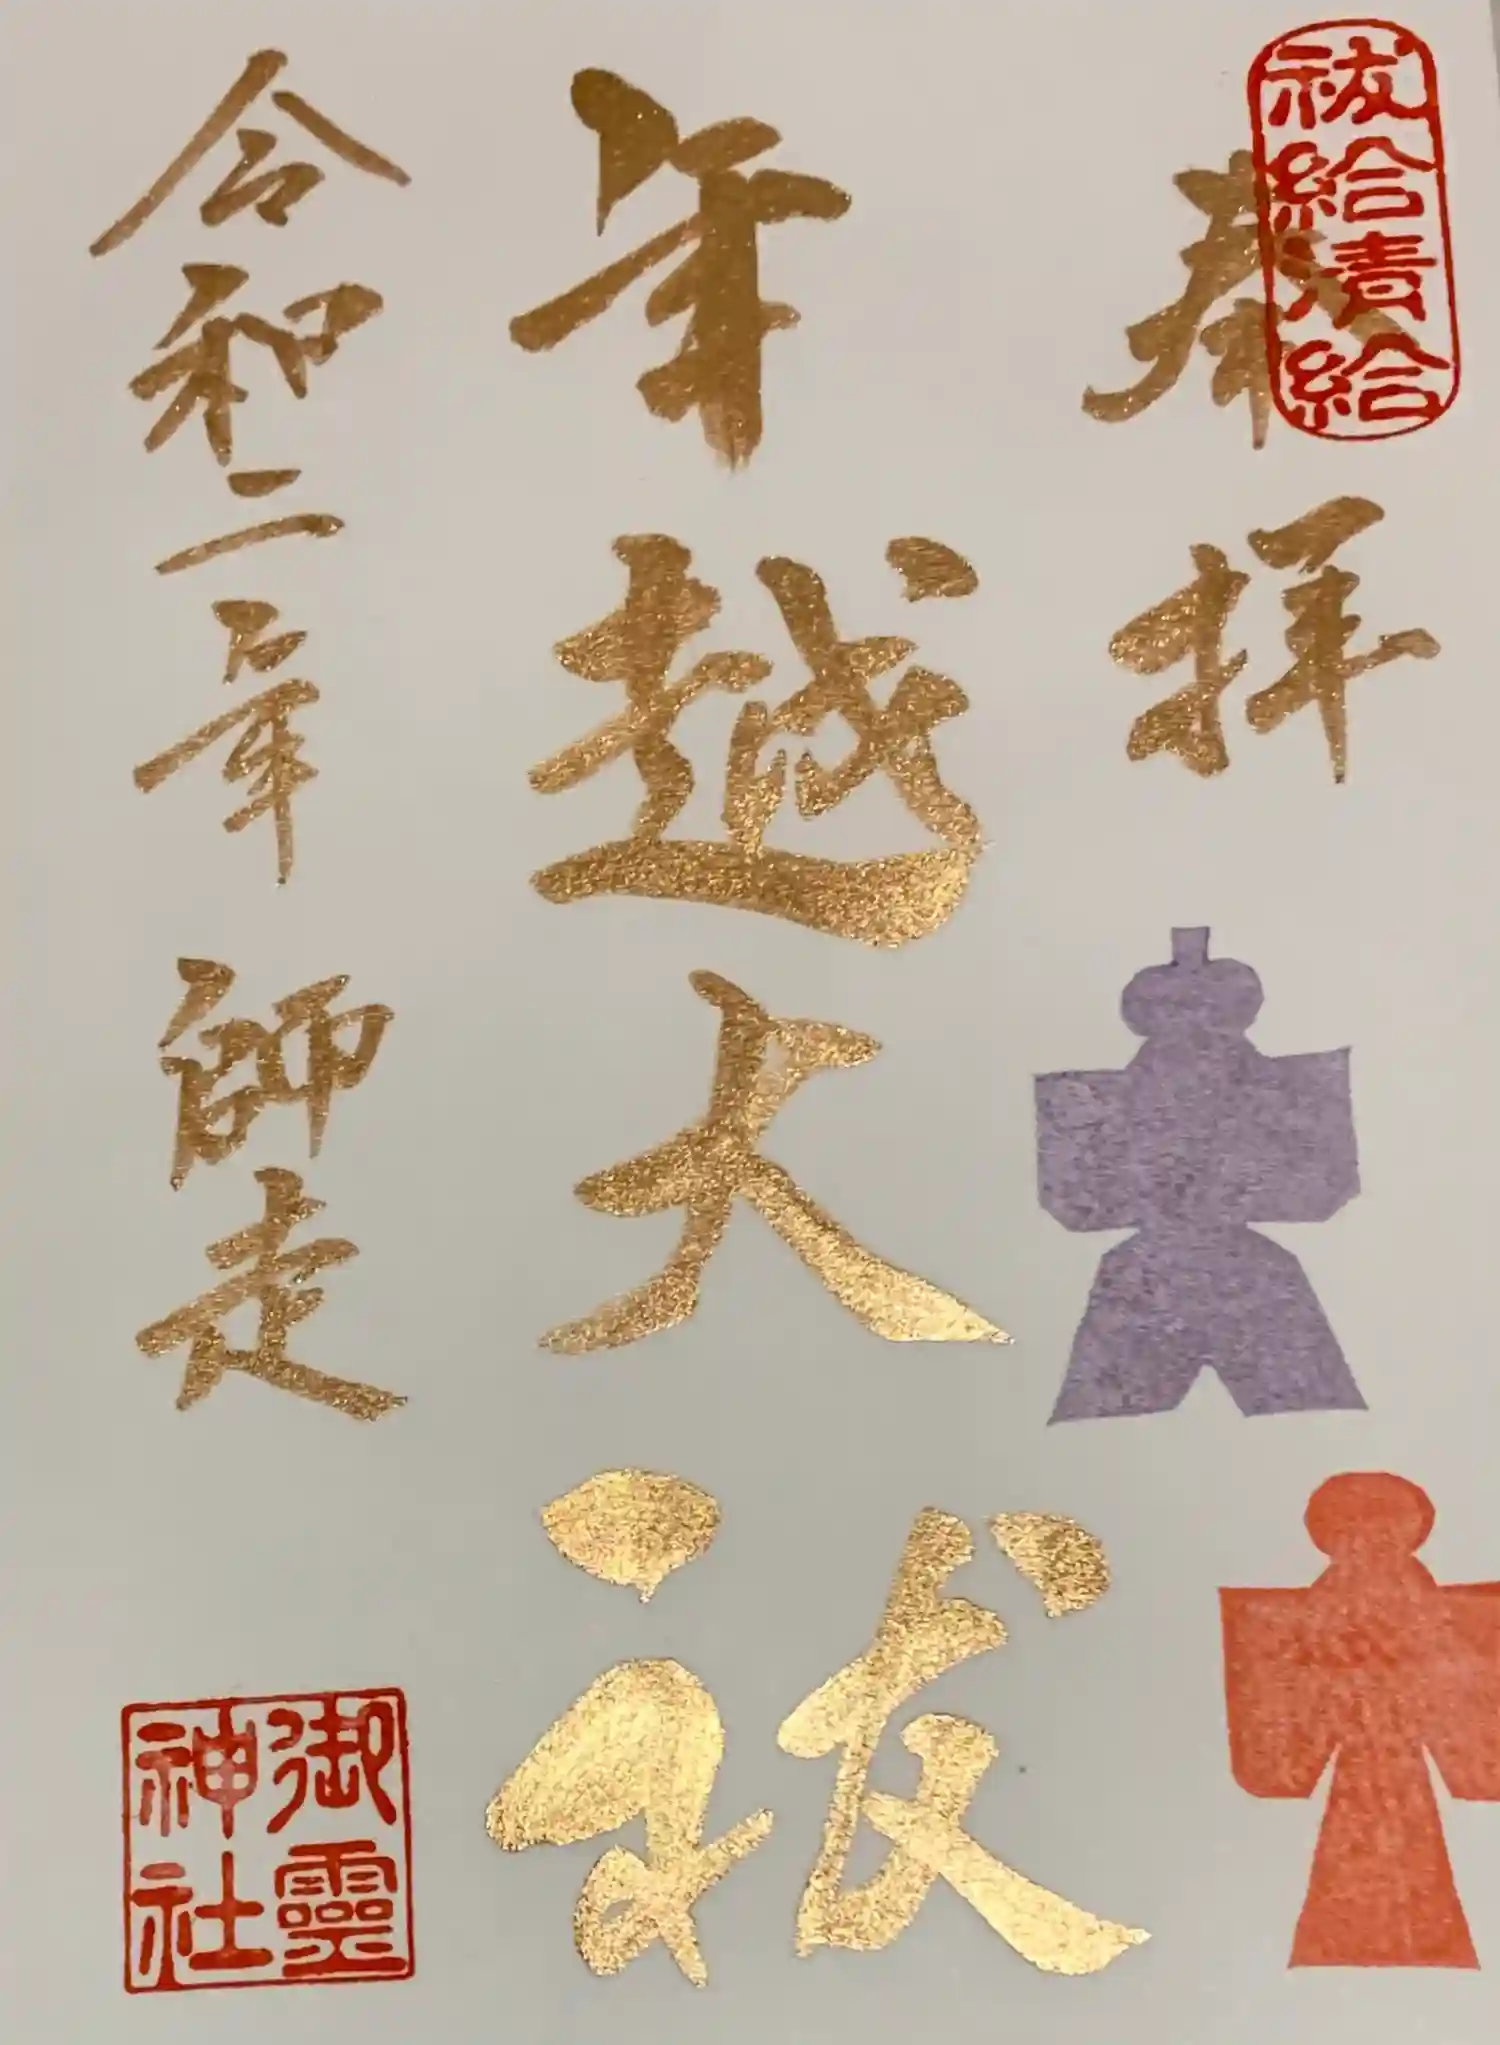 祓給清給
奉拝
年越大祓
令和二年師走
御靈神社